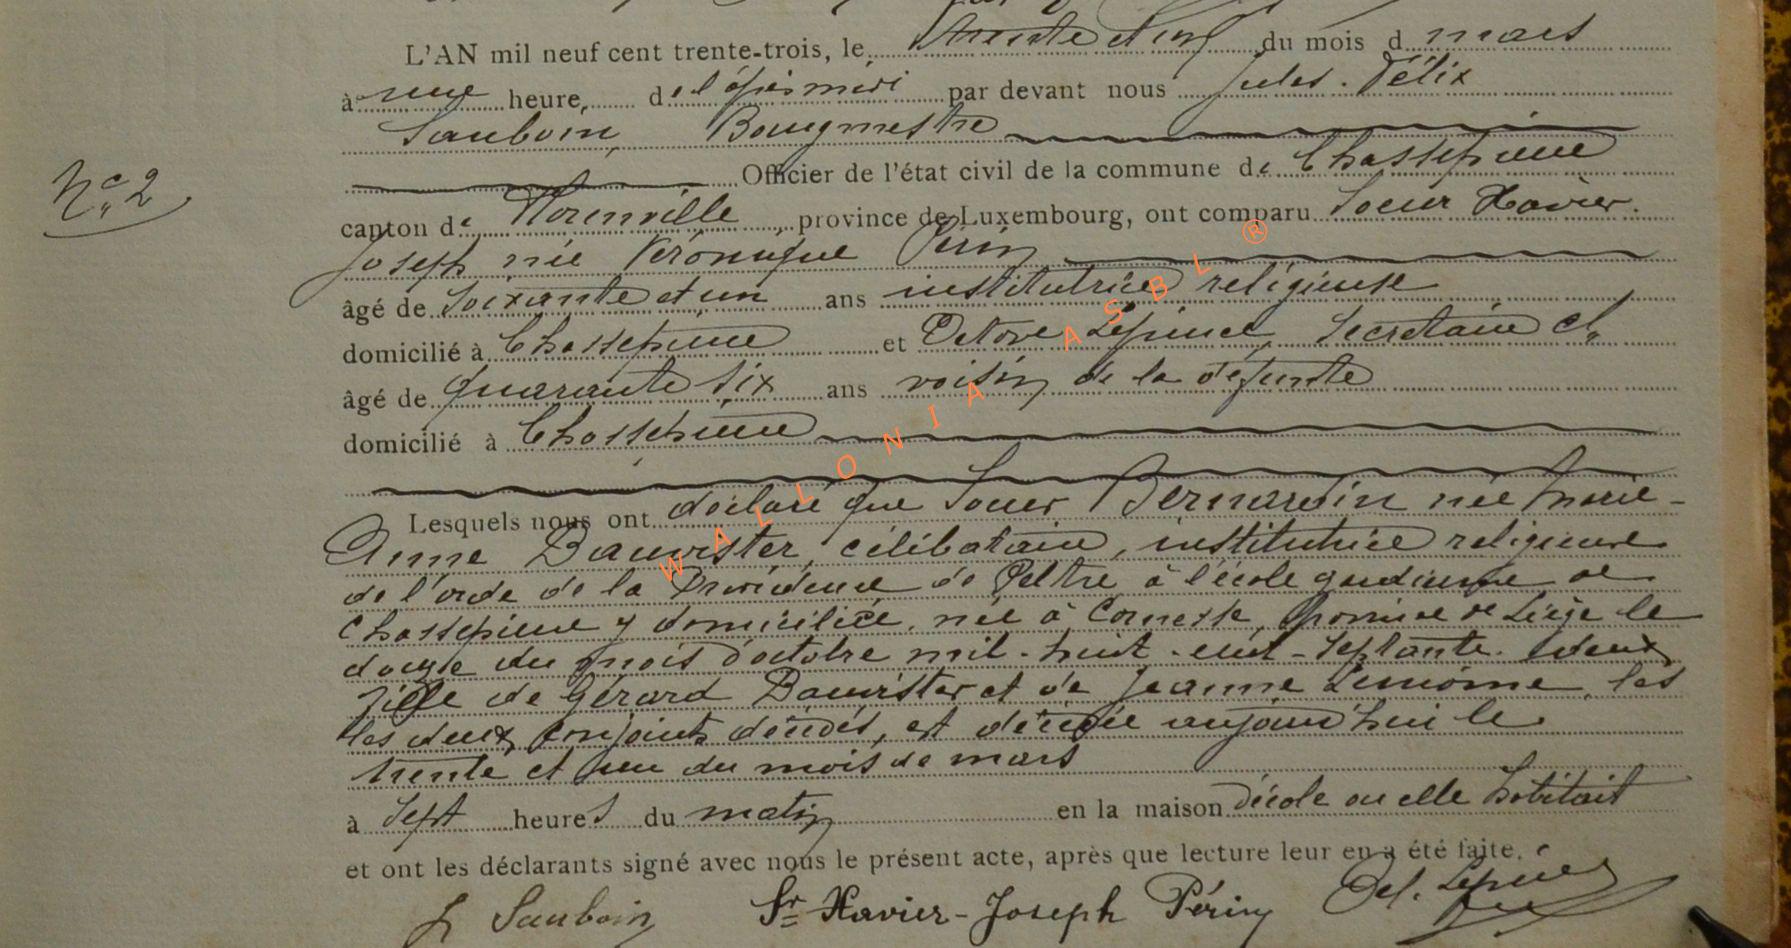 L'AN mil neuf cent trente-trois, le trente et un du mois d mars
à une heure, de l'après midi par devant nous Jules. Félix
Sauboin, Bourgmestre
Officier de l'état civil de la commune de Chassepierre
N° 2
canton de Florenville province de Luxembourg, ont comparu Soeur Xavier.
Joseph née Véronique Périn
âgé de soixante et un ans institutrice religieuse
domicilié à Chassepierre et Octave Lépine, Secrétaire cl
âgé de quarante six ans voisin de la défunte
domicilié à Chassepierre
Lesquels nous ont déclaré que Soeur Bernardin née Marie-
Anne Bauvister, célibataire, institutrice religieuse
de l'orde de la Providence de Peltre à l'école gardienne de
Chassepierre y domiciliée, née à Cornesse, Province de Liège le
douze du mois d'octobre mil-huit-cent-septante-deux,
fille de Gérard Bauvister et de Jeanne, les
les deux conjoints décédés, est décédée aujourd'hui le
trente et un du mois de mars
à sept heures du matin en la maison d'école ou elle habitait
et ont les déclarants signé avec nous le présent acte, après que lecture leur en a été faite.
J Sauboin Sr Xavier-Joseph Périn Oct. Lépine
WALLONIA ASBL ®